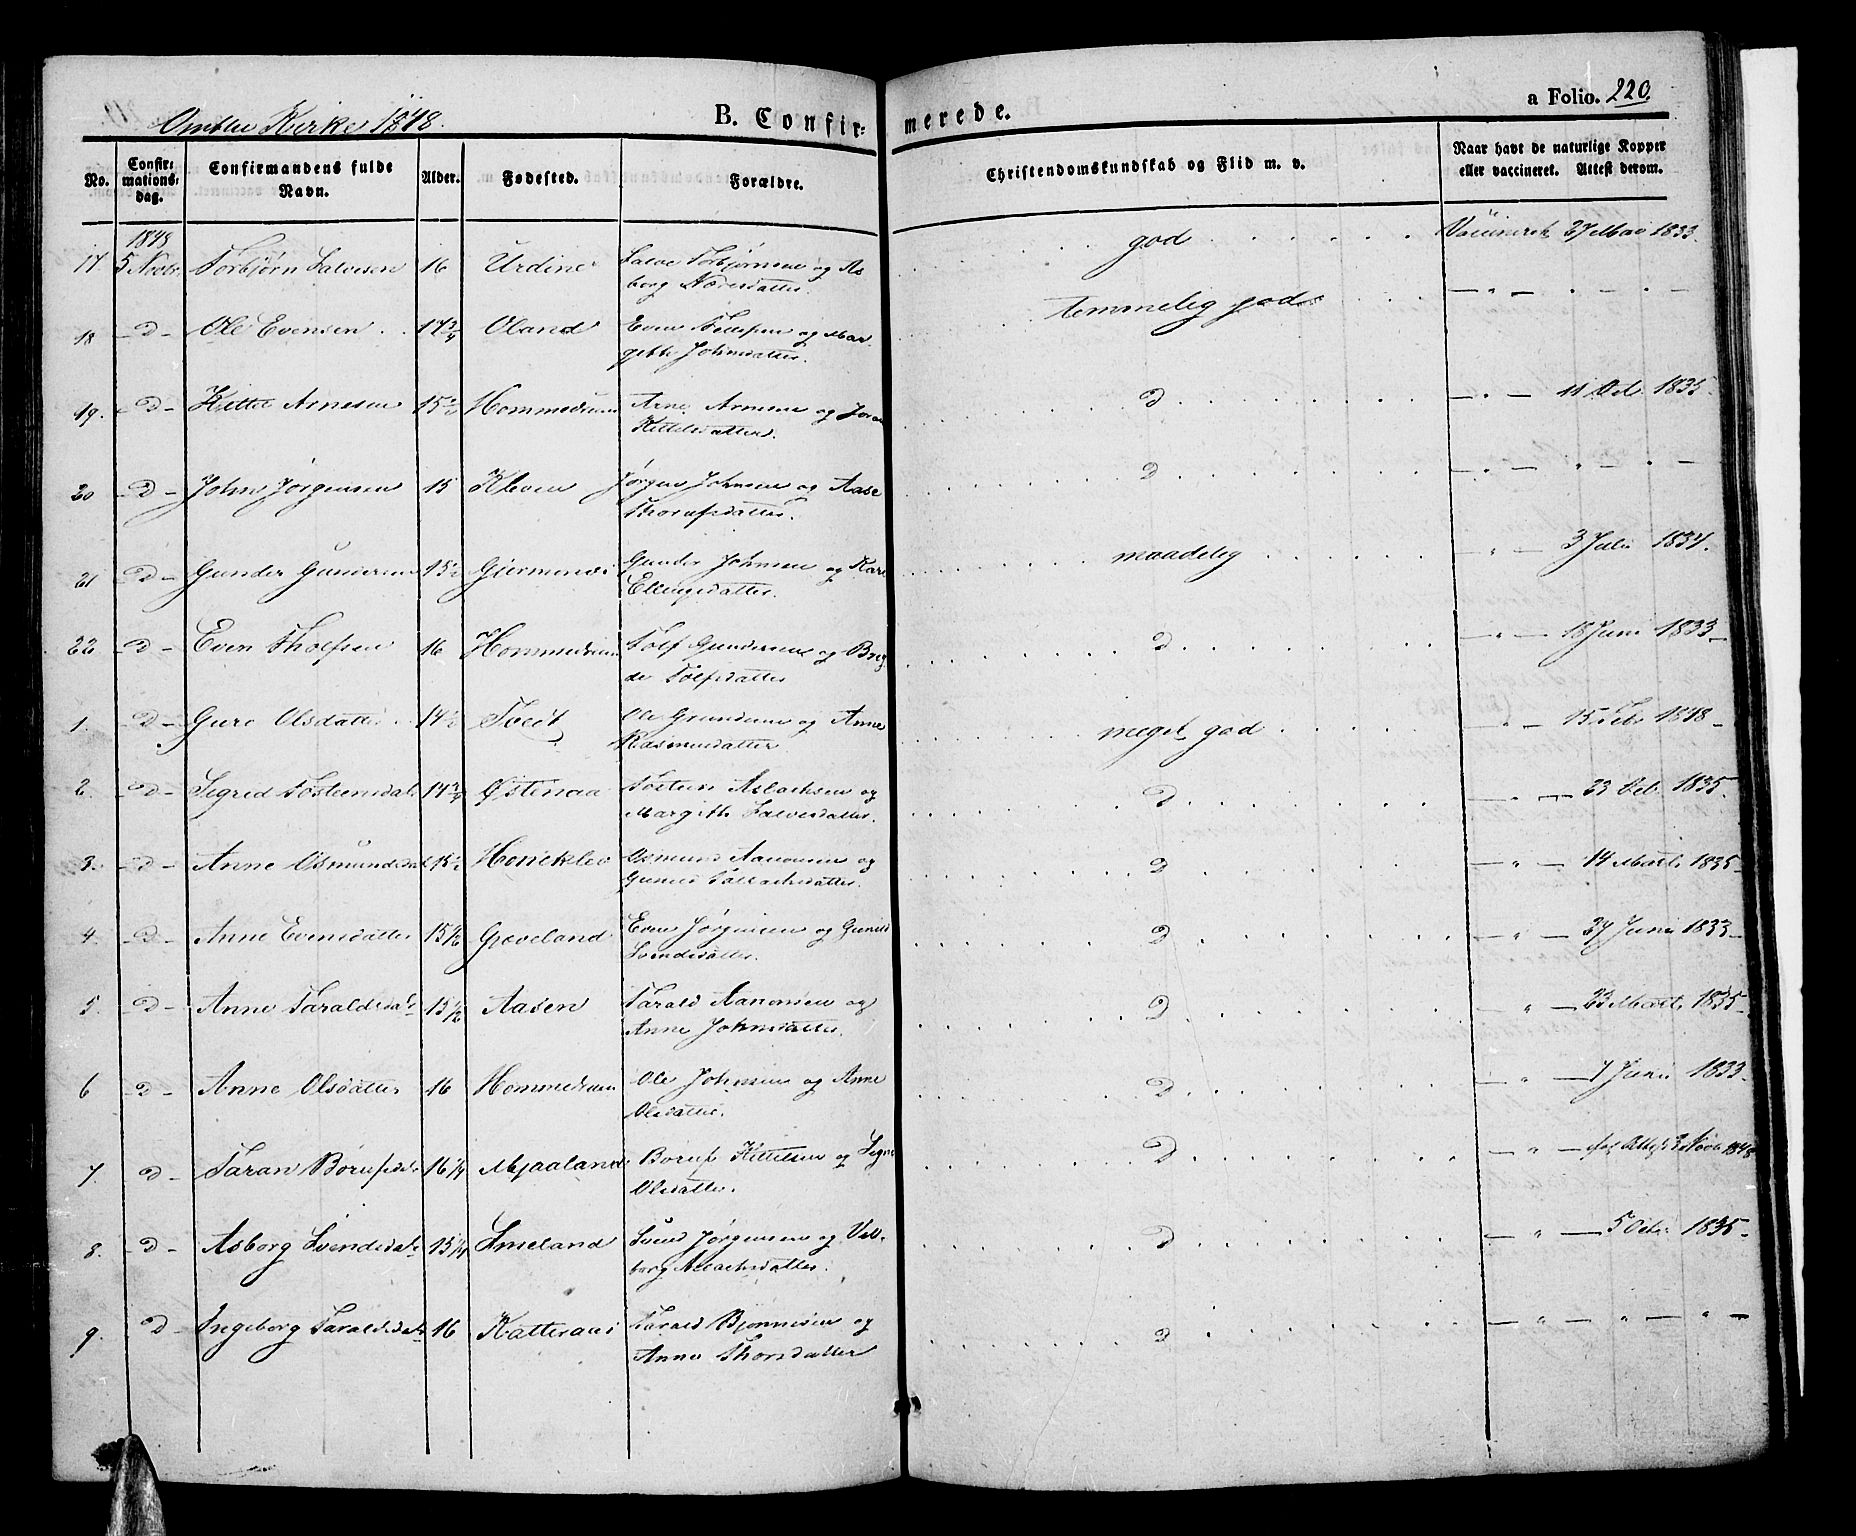 Omblie Kirke 1848.
B. Confirmerede.
a Folio. 220.
No.
Confirmationsdag.
Confirmandens fulde Navn.
Alder.
Fødested.
Forældre.
Christendomskundskab og Flid m. v.
Naar havt de naturlige Kopper eller vaccineret. Attest derom.
1848
17 5 Novbr. Torbjørn Salvesen 16 Urdine Salve Torbjørnsen og As
borg
god Vaccineret 27 Mai 1833.
18 D Ole Evensen 17 3/4 Oland Even Tellefsen og Mar
gethe Johnsdatter.
temmelig god
19. D Kittel Arnesen 15 1/2 Hommedrum Arne Arnesen og
Kittelsdatter.
D 11 Oct. 1835.
20 D John Jørgensen 15 Kleven Jørgen Johnsen og Aase
datter.
D
21 D Gunder Gundersen 15 1/2 Gunder Johnsen og Kari
Ellingsdatter.
maadelig 3 Juli 1834.
22 D Even Tholfsen 16 Hommedrum Tolf Gundersen og Brig
de Tolfsdatter
D 18 Juni 1833
1. D Guro Olsdatter 14 1/2 Tveit Ole Gundersen og Anne
Rasmusdatter
meget god 15 Feb 1848
2. D Sigrid Tosteensdat 14 3/4 Østenaa Aslachsen og
Margith Salvesdatter.
D 23 Oct. 1835.
3. D Anne Osmundsdat 15 1/2 Osmund Aanonsen og
Guni Tallachsdatter.
D 14 Marts 1835
4. D Anne Evensdatter 15 1/2 Gveland Even Jørgensen og Gunild
Svendsdatter.
D 27 Juni 1833
5. D Anne Taraldsdat 15 1/2 Aasen Tarald Aanonsen og
Anne Johnsdatter.
D 23 Marts 1835
6 D Anne Olsdatter 16 Hommedrum Ole Johnsen og Anne
Olsdatter.
D 7 Juni 1833
7. D Taran Børufsdat 16 1/4 Mjaaland Boruf Kittelsen og Signe
Olsdatter.
D 3 Novb 1848
8. D Asborg Svendsdat 15 1/4 Smeland Svend Jørgensen og Val-
borg Aslachsdatter.
D 5 Oct. 1835
9. D Ingeborg Taraldsdat 16 Katteraas Tarald Bjørnsen og
Anne Thorsdatter
D